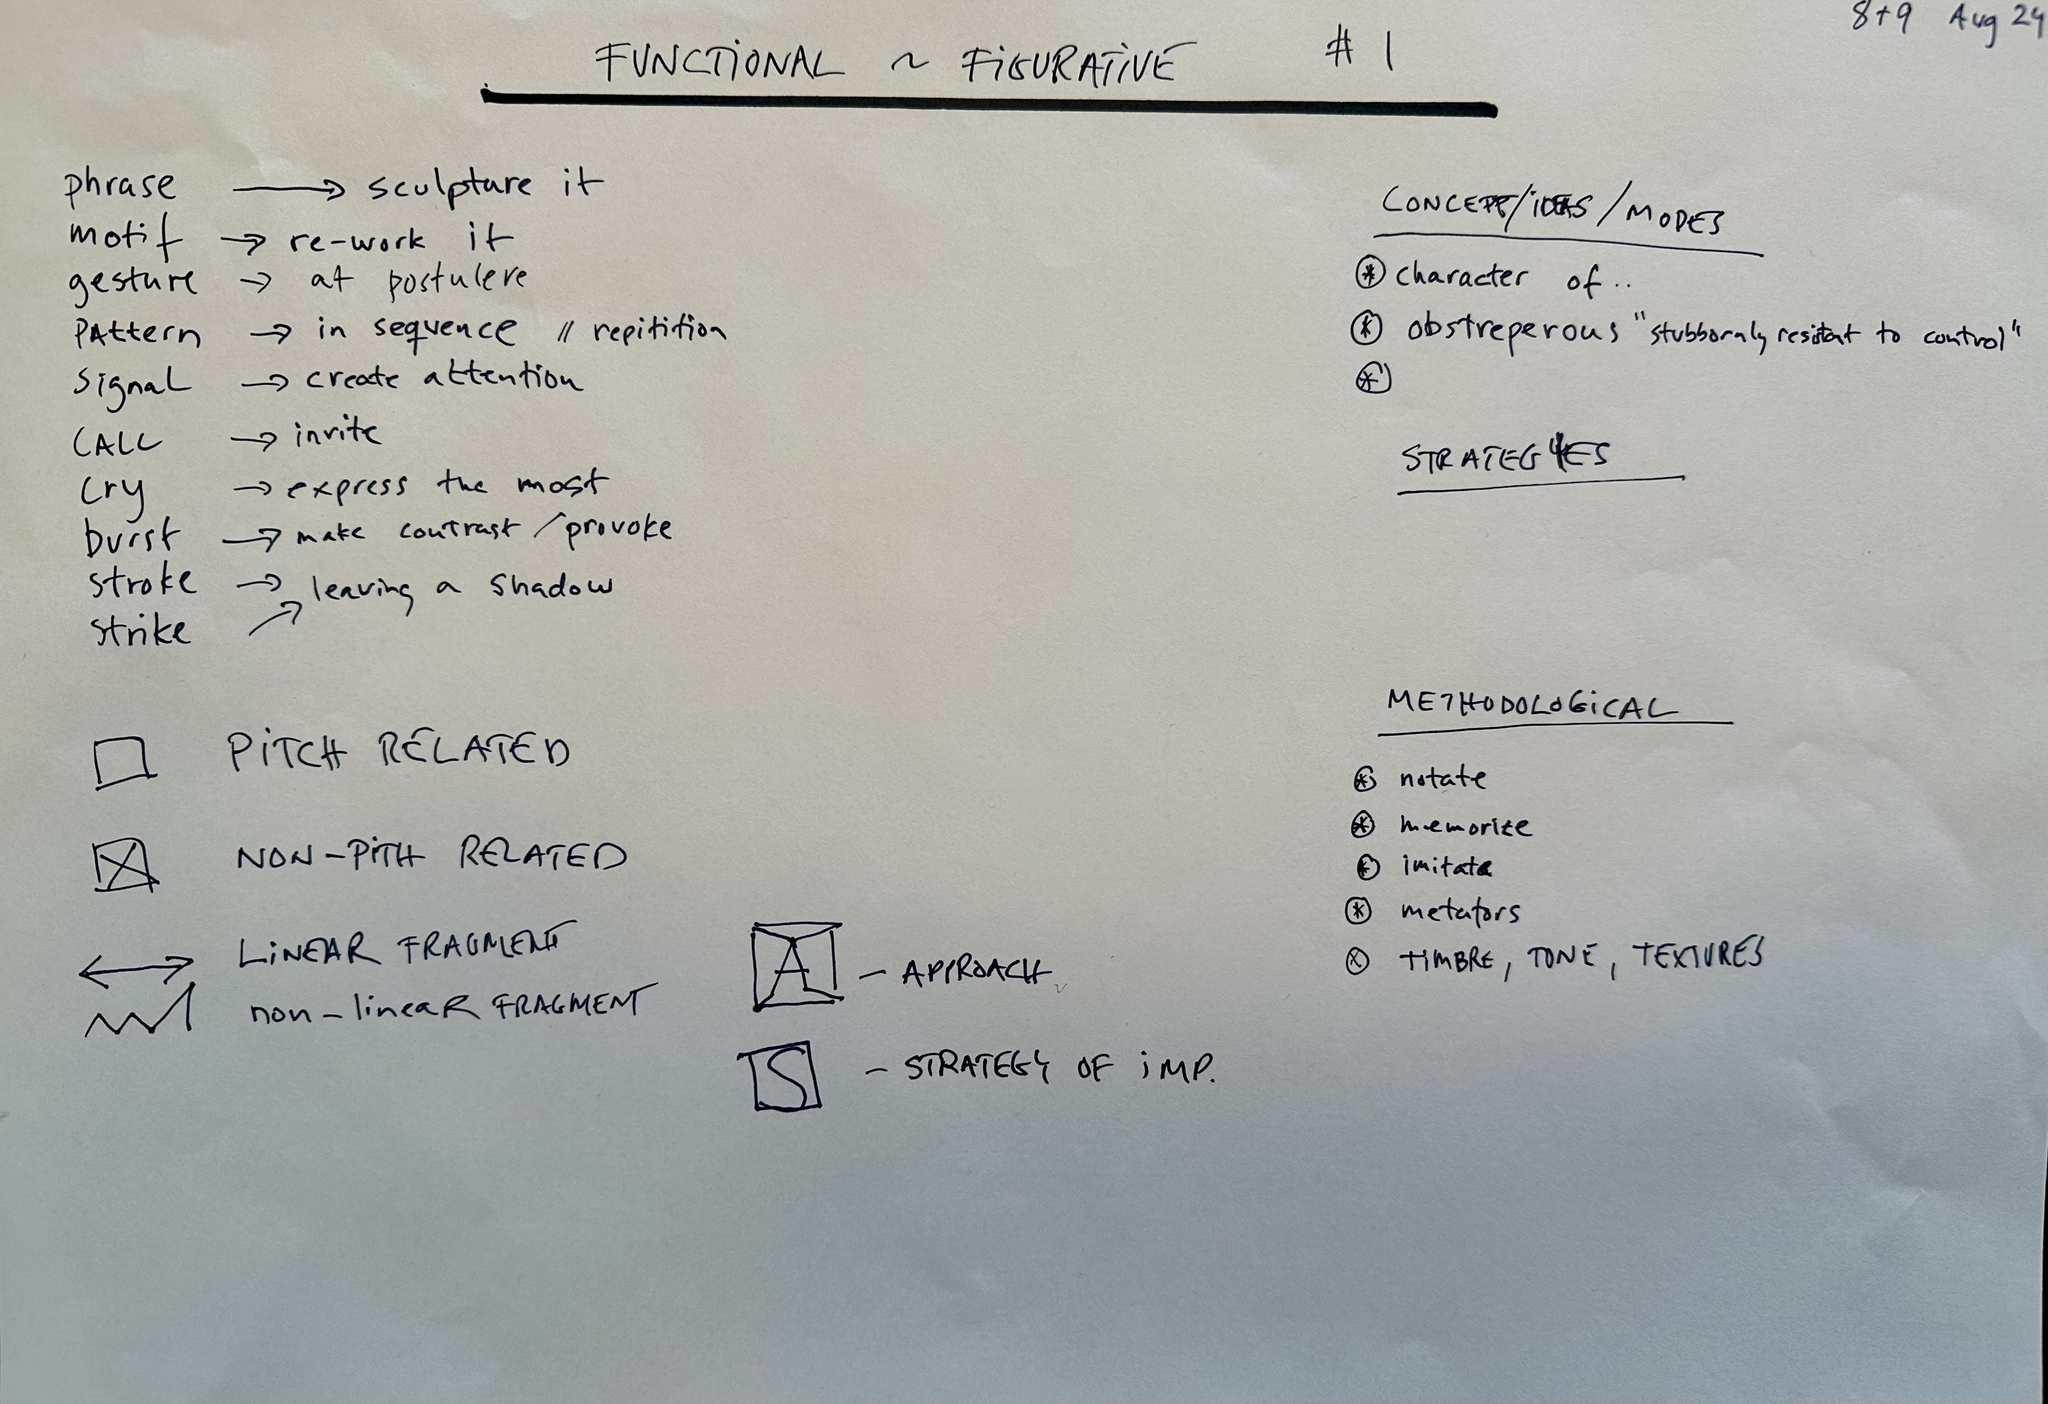 8+9 Aug 24
FUNCTIONAL ~ FIGURATIVE # 1
phrase → sculpture it
motif → re-work it
gesture → at postulere
PAttern → in sequence // repitition
signaL → create attention
CALL → invite
Cry → express the most
burst → make contrast / provoke
stroke → leaving a shadow
strike ↗
PITCH RELATED
NON-PITH RELATED
LINEAR FRAGMENT
non-lineaR FRAGMENT
A - APPROACH
S - STRATEGY OF IMP.
CONCEPT/IDEAS/MODES
character of..
obstreperous "stubbornly resistant to control"
STRATEGIES
METHODOLOGICAL
notate
memorize
imitate
metafors
TIMBRE, TONE, TEXTURES